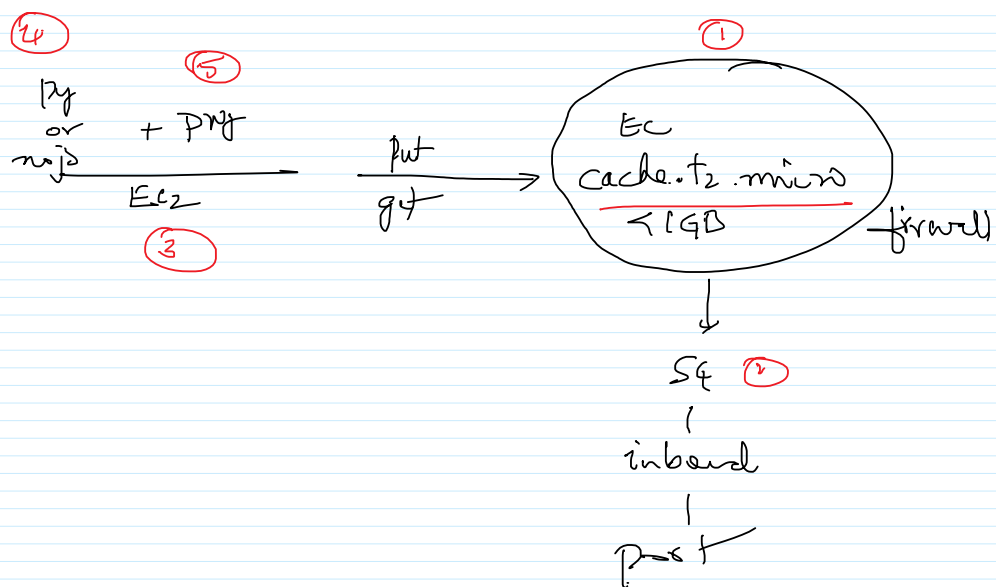 4
5
1
py
or
nojs
+ prg
EC2
3
put
get
EC
cache.t2.micro
<1GB
firewall
SG
2
inbound
port